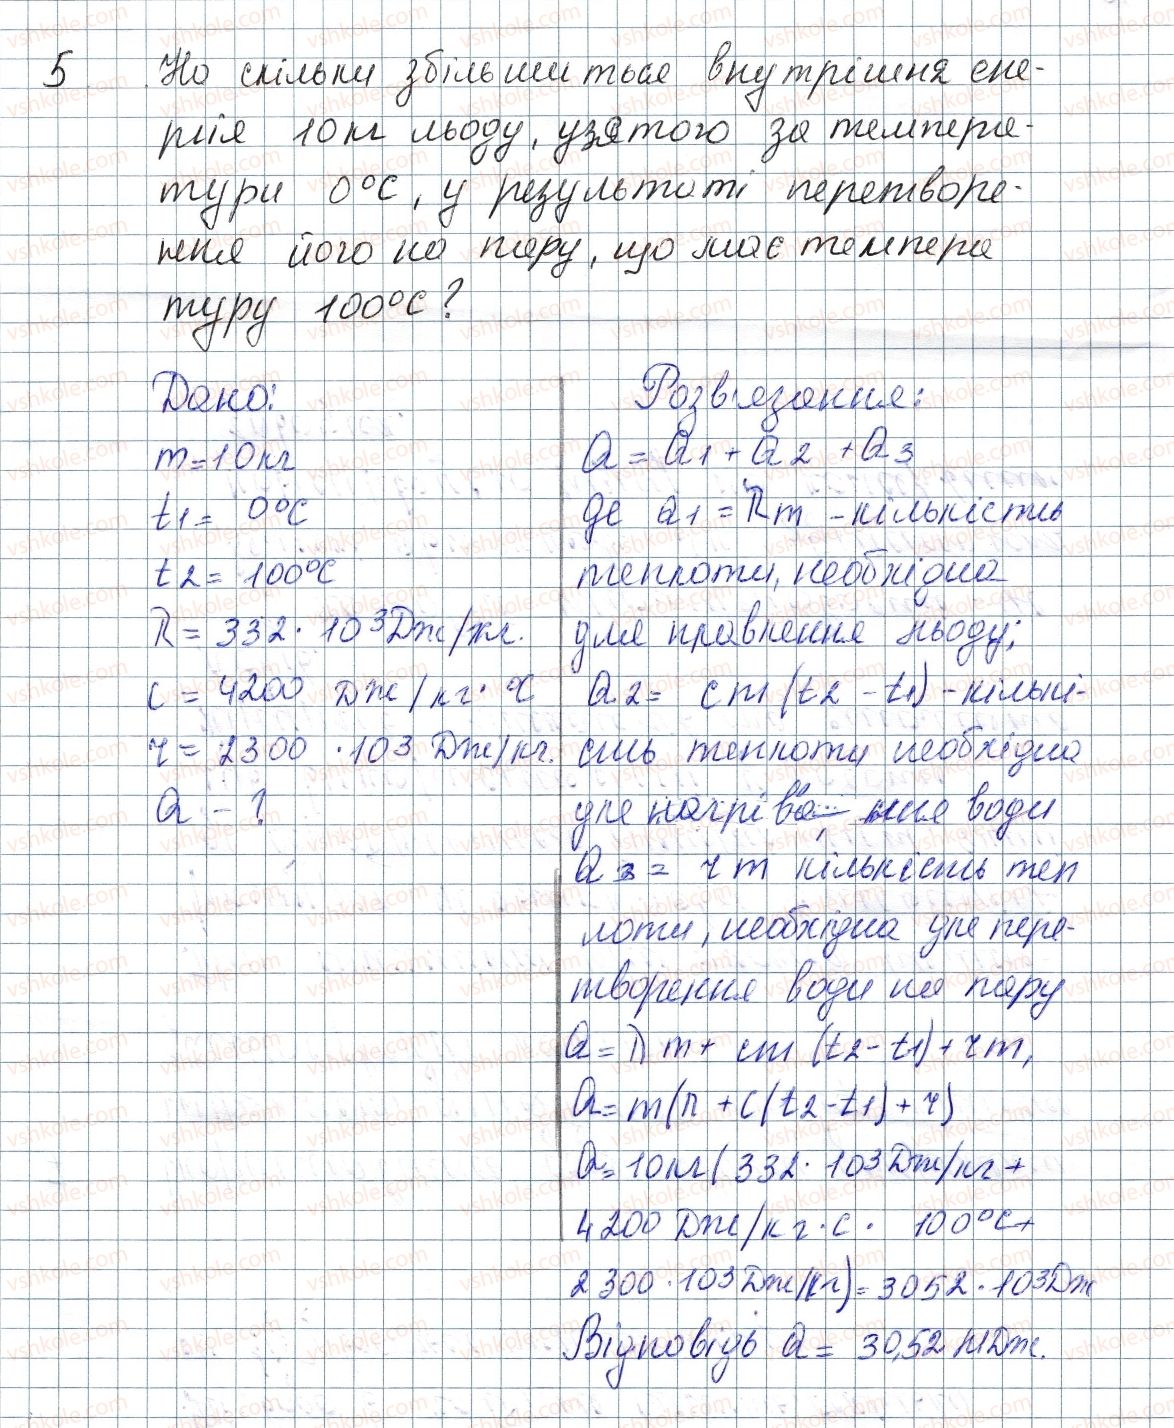 5 На скільки збільшиться внутрішня ене-
ргія 10 кг льоду, узятого за темпера-
тури 0°C, у результаті перетворе-
ння його на пару, що має темпера
туру 100°C?
Дано:
m = 10 кг
t1 = 0°C
t2 = 100°C
λ = 332 · 10³ Дж/кг.
c = 4200 Дж/кг · °C
r = 2300 · 10³ Дж/кг.
Q - ?
Розв'язання:
Q = Q1 + Q2 + Q3
де Q1 = λm - кількість
теплоти, необхідна
для плавлення льоду;
Q2 = cm(t2 - t1) - кількі-
сть теплоти необхідна
для нагріва ння води
Q3 = rm кількість теп
лоти, необхідна для пере-
творення води на пару
Q = λm + cm(t2 - t1) + rm,
Q = m(λ + c(t2 - t1) + r)
Q = 10 кг(332 · 10³ Дж/кг +
4200 Дж/кг · C · 100°C +
2300 · 10³ Дж/кг) = 3052 · 10³ Дж
Відповідь Q = 30,52 МДж.
vshkole.com